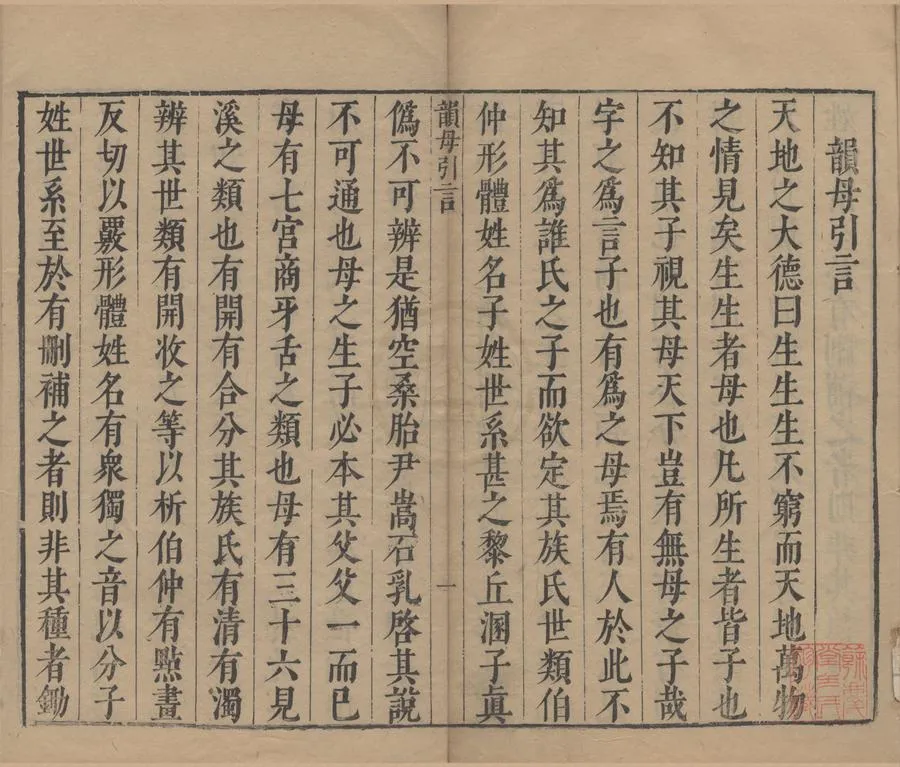 韻母引言
天地之大德曰生生生不窮而天地萬物
之情見矣生生者母也凡所生者皆子也
不知其子視其母天下豈有無母之子哉
字之爲言子也有爲之母焉有人於此不
知其爲誰氏之子而欲定其族氏世類伯
仲形體姓名子姓世系甚之黎丘溷子眞
韻母引言
一
僞不可辨是猶空桑胎尹嵩石乳啓其說
不可通也母之生子必本其父父一而已
母有七宮商牙舌之類也母有三十六見
溪之類也有開有合分其族氏有清有濁
辨其世類有開收之等以析伯仲有點畫
反切以覈形體姓名有衆獨之音以分子
姓世系至於有刪補之者則非其種者鋤